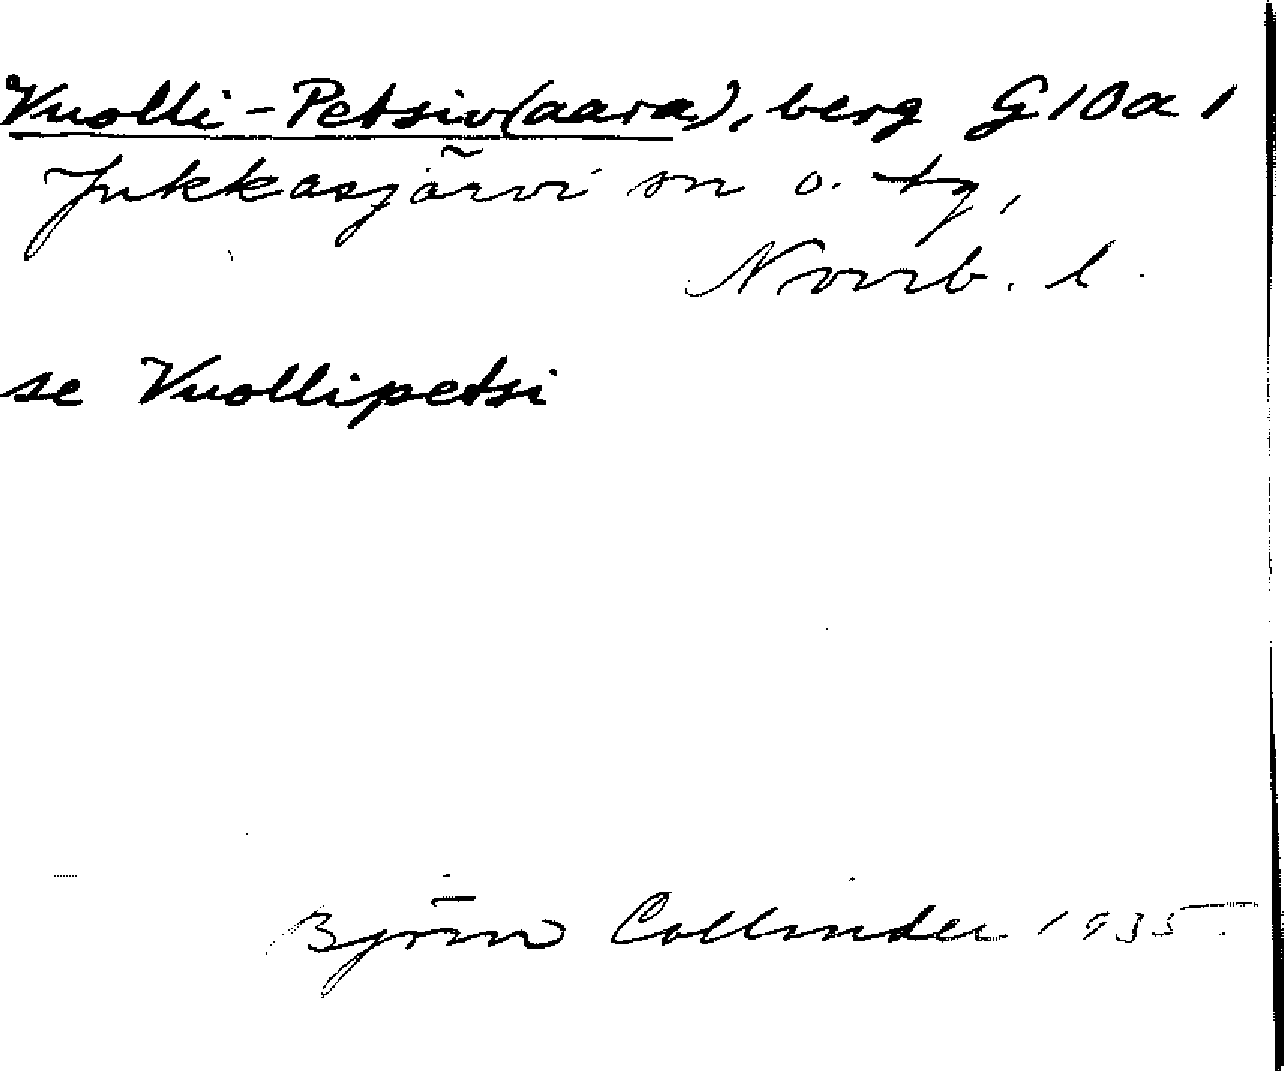 Vuolli-Petsiv(aara), berg G10a1
Jukkasjärvi sn o. tg,
Norrb. l.
se Vuollipetsi
Björn Collinder 1935.